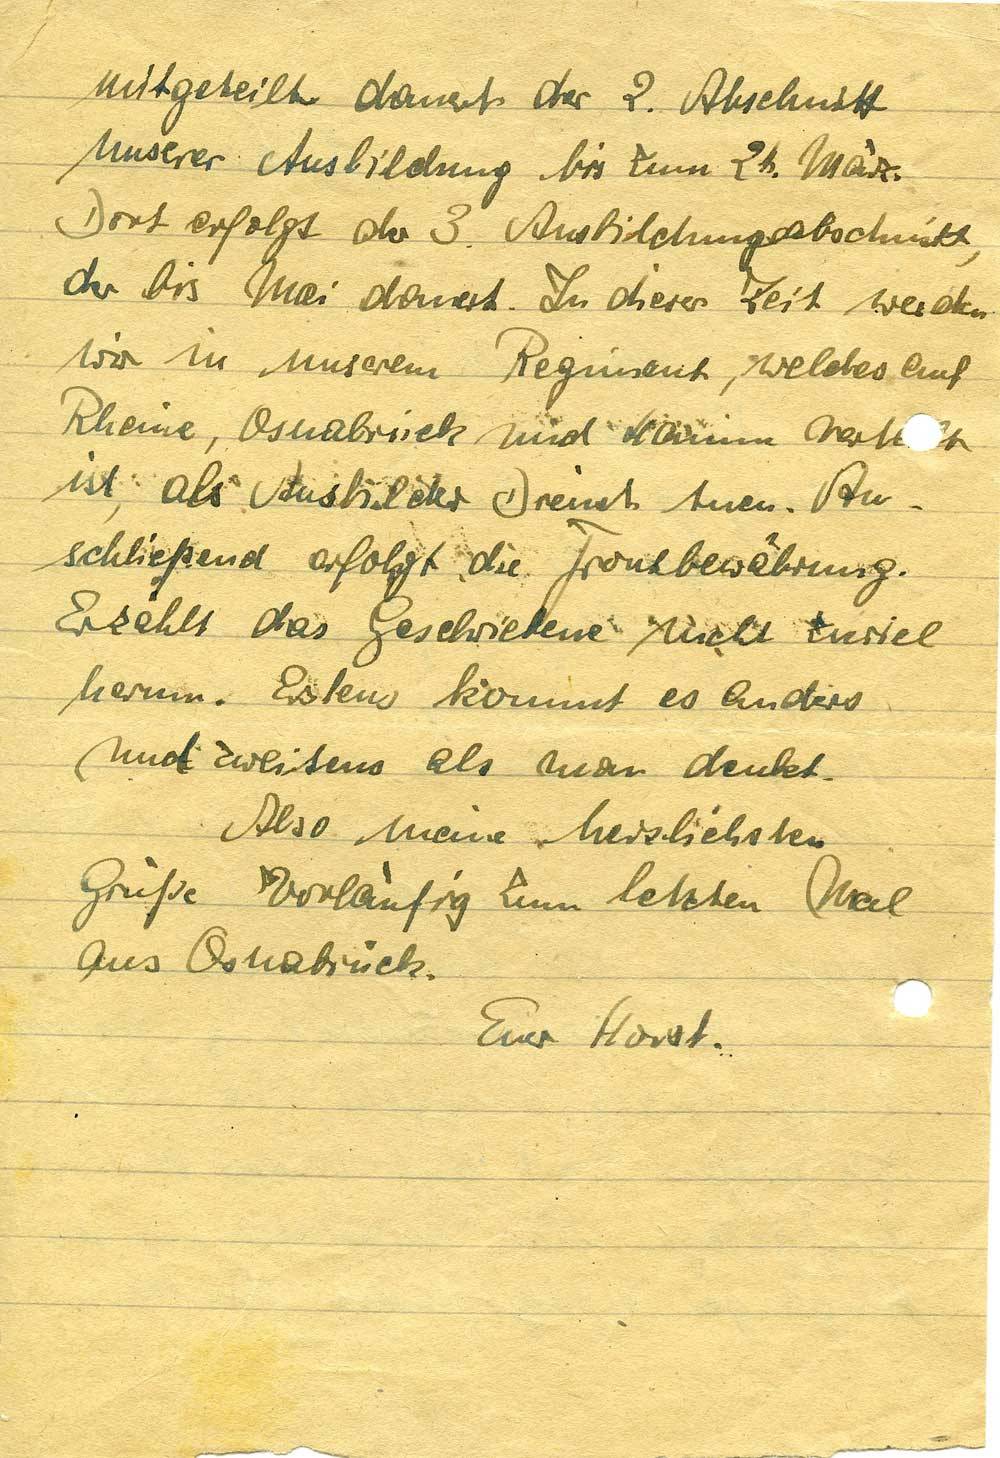 mitgeteilt dauert der 2. Abschnitt
unserer Ausbildung bis zum März.
Dort erfolgt der 3. Ausbildungsabschnitt,
der bis Mai dauert. In dieser Zeit werden
wir in unserem Regiment, welches auf
Rheine, Osnabrück und Hamm
ist, als Ausbilder Dienst tuen. An-
schließend erfolgt die Frontbewährung.
Erzählt das Geschriebene nicht zuviel
herum. Erstens kommt es anders
und zweitens als man denkt.
Also meine herzlichsten
Grüße vorläufig zum letzten Mal
aus Osnabrück.
Euer Horst.